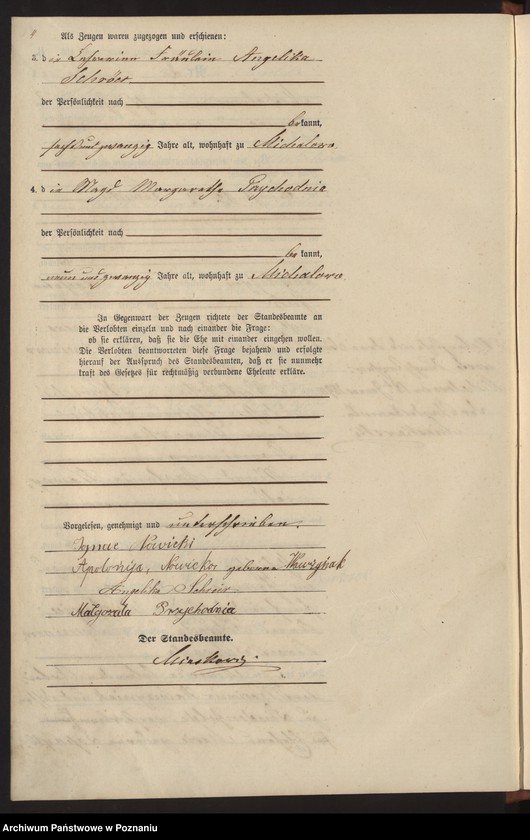 Als Zeugen waren zugezogen und erschienen:
3. d ie Lehrerinn Fräulein Angelika
Schröer
der Persönlichkeit nach
be kannt,
sechs und zwanzig Jahre alt, wohnhaft zu Michalowo.
4. d ie Magd Margarethe Przychodnia
der Persönlichkeit nach
be kannt,
neun und zwanzig Jahre alt, wohnhaft zu Michalowo.
In Gegenwart der Zeugen richtete der Standesbeamte an
die Verlobten einzeln und nach einander die Frage:
ob sie erklären, daß sie die Ehe mit einander eingehen wollen.
Die Verlobten beantworteten diese Frage bejahend und erfolgte
hierauf der Ausspruch des Standesbeamten, daß er sie nunmehr
kraft des Gesetzes für rechtmäßig verbundene Eheleute erkläre.
Vorgelesen, genehmigt und unterschrieben.
Ignac Nowicki
Apolonija, Nowicka geborene
Angelika Schröer
Małgorzata Przychodnia
Der Standesbeamte.
Archiwum Państwowe w Poznaniu